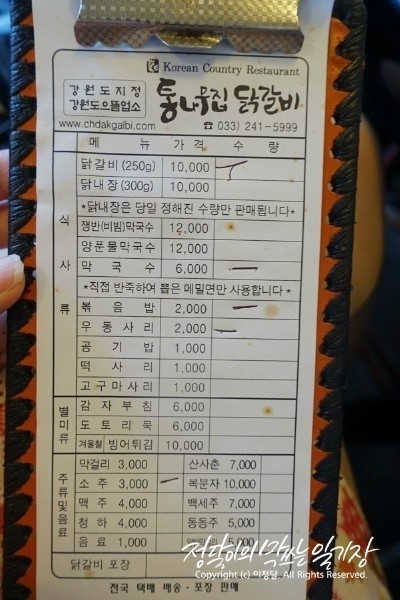 Korean Country Restaurant
강원도지정
강원도으뜸업소
통나무집 닭갈비
www.chdakgalbi.com ☎ 033) 241-5999
메 뉴 가 격 수 량
식사류
닭갈비 (250g) 10,000
닭내장 (300g) 10,000
*닭내장은 당일 정해진 수량만 판매됩니다*
쟁반(비빔)막국수 12,000
양푼물막국수 12,000
막 국 수 6,000
*직접 반죽하여 뽑은 메밀면만 사용합니다*
볶 음 밥 2,000
우 동 사 리 2,000
공 기 밥 1,000
떡 사 리 1,000
고구마사리 1,000
별미류
감 자 부 침 6,000
도 토 리 묵 6,000
겨울철 빙어튀김 10,000
주류및음료
막걸리 3,000 산사춘 7,000
소 주 3,000 복분자 10,000
맥 주 4,000 백세주 7,000
청 하 4,000 동동주 5,000
음 료 1,000 5,000
닭갈비 포장
전국 택배 배송 · 포장 판매
정달이의 맛보는 일기장
Copyright (c) 이정달. All Rights Reserved.